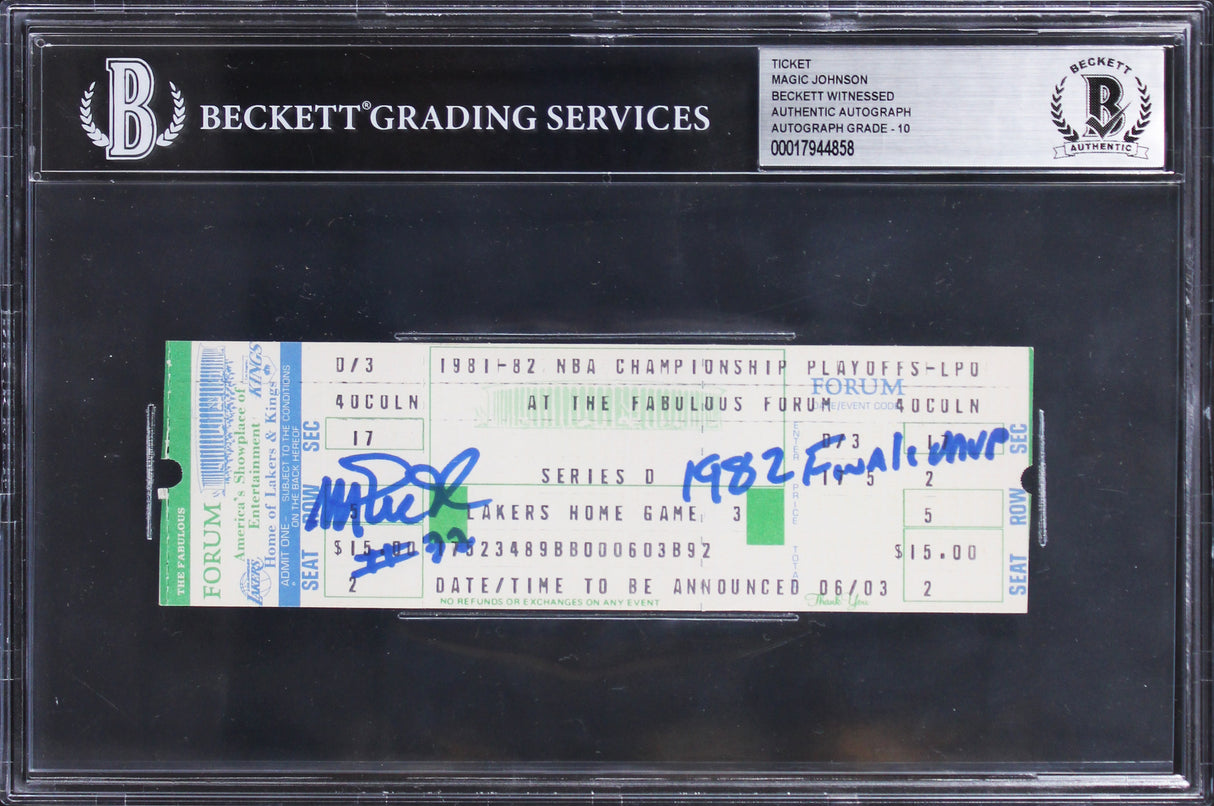 B BECKETT® GRADING SERVICES
TICKET
MAGIC JOHNSON
BECKETT WITNESSED
AUTHENTIC AUTOGRAPH
AUTOGRAPH GRADE - 10
00017944858
BECKETT
B
AUTHENTIC
THE FABULOUS
FORUM
America's Showplace of
Entertainment
Home of Lakers & Kings
LAKERS
KINGS
ADMIT ONE SUBJECT TO THE CONDITIONS
ON THE BACK HEREOF
SEAT ROW SEC
D/3
40COLN
17
5
$15.00
2
1981-82 NBA CHAMPIONSHIP PLAYOFFS-LPO
AT THE FABULOUS FORUM
SERIES D
LAKERS HOME GAME 3
17523489BB000603B92
DATE/TIME TO BE ANNOUNCED 06/03
NO REFUNDS OR EXCHANGES ON ANY EVENT
FORUM
DATE/EVENT CODE
40COLN
ENTER PRICE TOTAL
D/3
17
2
5
$15.00
2
Thank You
SEAT ROW SEC
#32
1982 Finals MVP